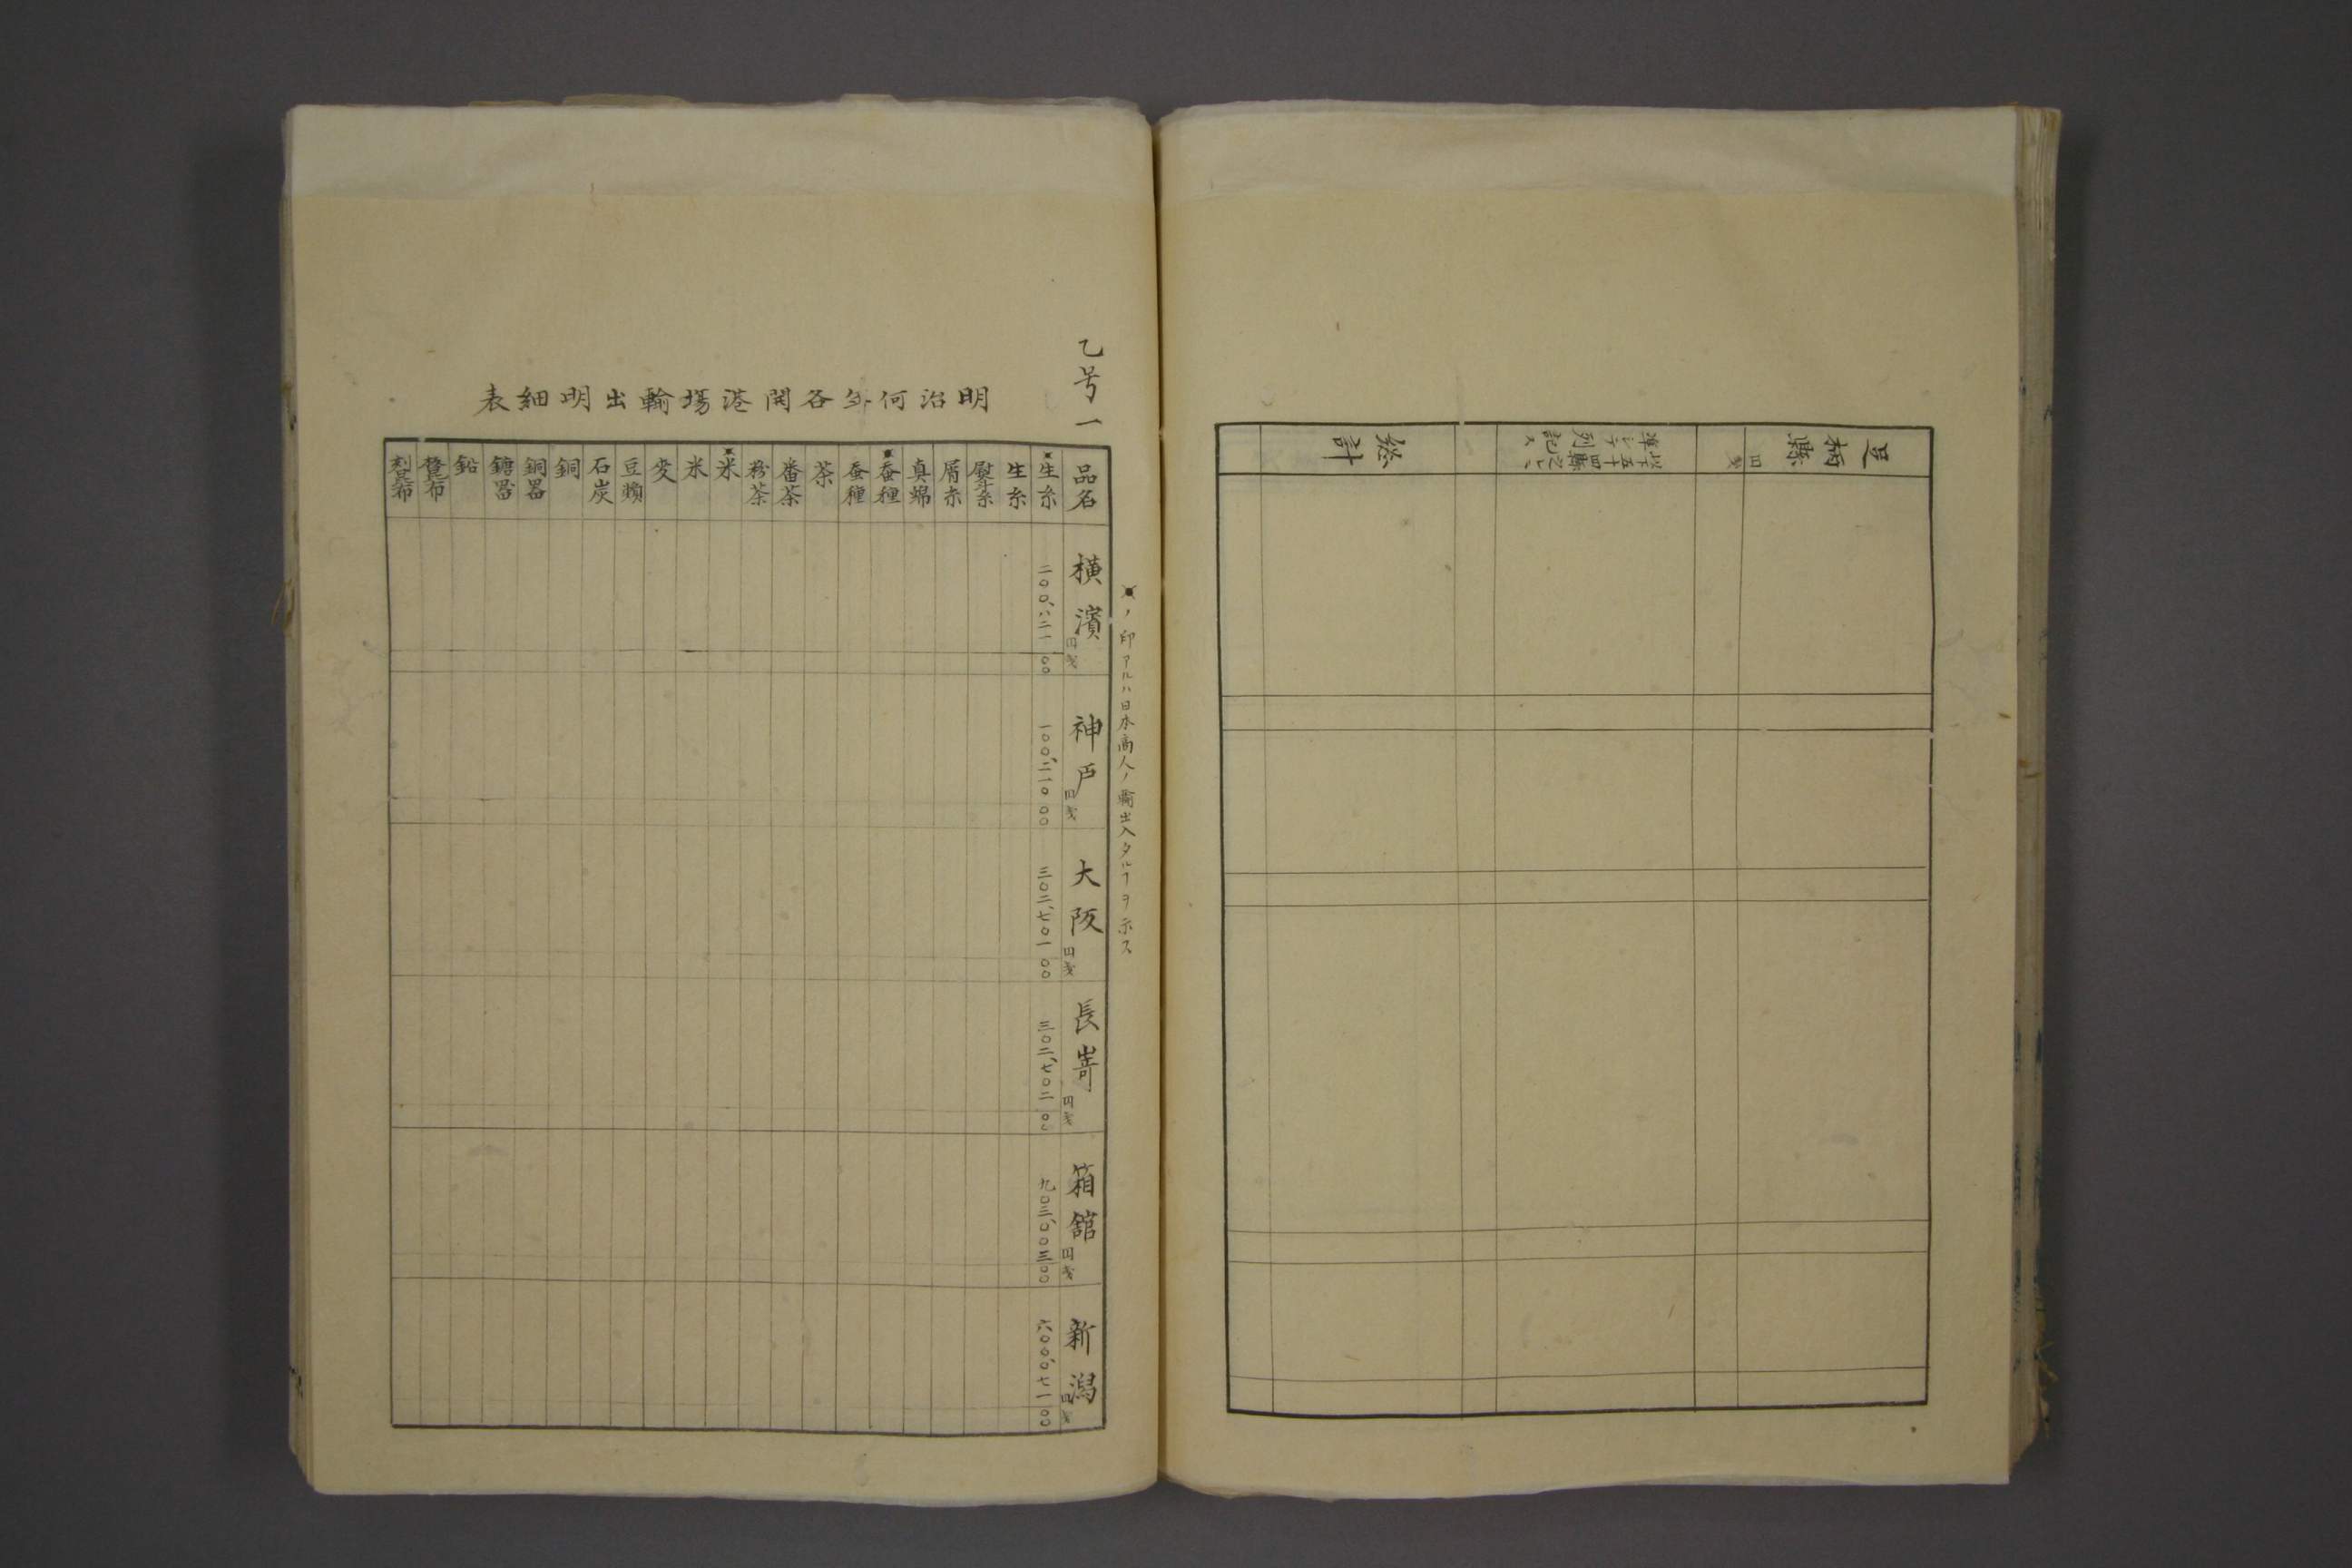 足柄縣
円銭
以下五十四縣之ニ準シテ列記ス
総計
乙号一
明治何年各開港場輸出明細表
※ノ印アルハ日本商人ノ輸出入タルヿヲ示ス
品名
横濱 円銭
神戸 円銭
大阪 円銭
長嵜 円銭
箱舘 円銭
新潟 円銭
※生糸
二〇〇、八二一 〇〇
一〇〇、二一〇 〇〇
三〇二、七〇一 〇〇
三〇二、七〇二 〇〇
九〇三、〇〇三 〇〇
六〇〇、〇七一 〇〇
生糸
熨斗糸
屑糸
真綿
※蚕種
蚕種
茶
番茶
粉茶
※米
米
麦
豆類
石炭
銅
銅器
鉛
刻昆布